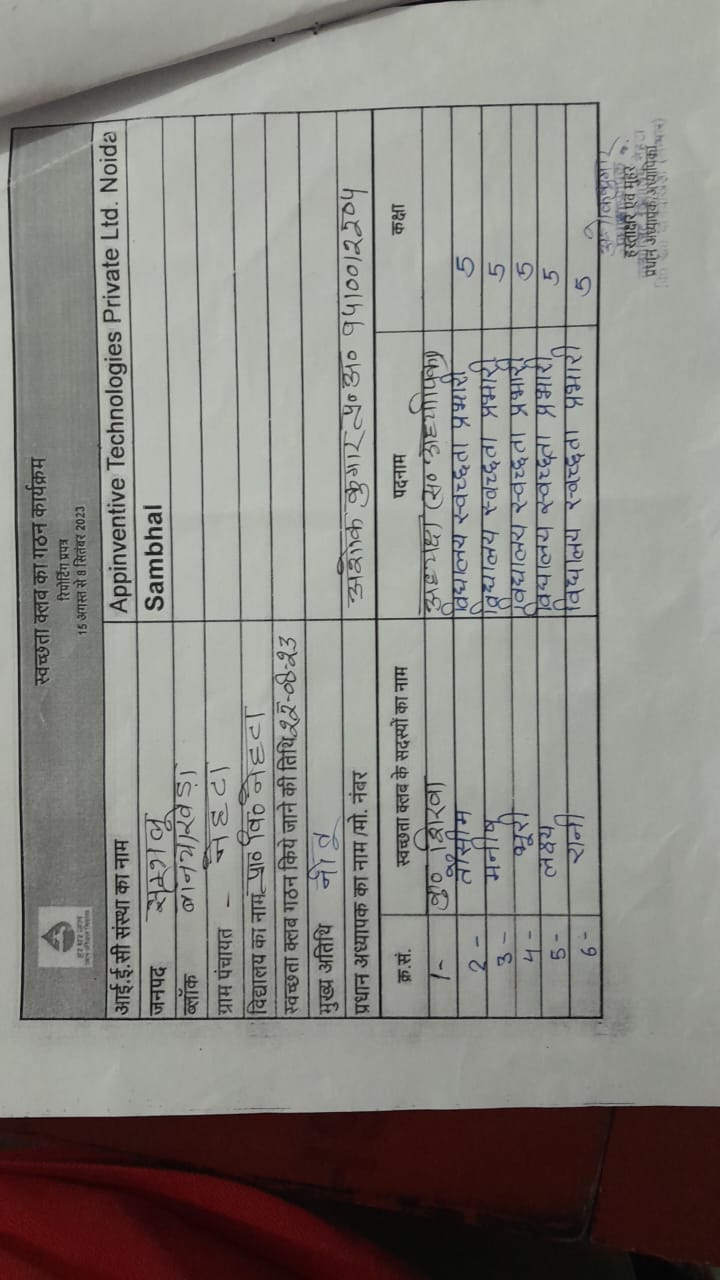 स्वच्छता क्लब का गठन कार्यक्रम
रिपोर्टिंग प्रपत्र
15 अगस्त से 8 सितंबर 2023
हर घर जल
आई.ई.सी संस्था का नाम Appinventive Technologies Private Ltd. Noida
जनपद सम्भल Sambhal
ब्लॉक बनियाखेड़ा
ग्राम पंचायत - नेहटा
विद्यालय का नाम प्रा० वि० नेहटा
स्वच्छता क्लब गठन किये जाने की तिथि 22-08-23
मुख्य अतिथि
प्रधान अध्यापक का नाम /मो. नंबर अशोक कुमार प्र० अ०
क्र.सं. स्वच्छता क्लब के सदस्यों का नाम पदनाम कक्षा
1- कु० शिखा अध्यक्ष (स० अध्यापिका)
2- तासीम विद्यालय स्वच्छता प्रभारी 5
3- मनीष विद्यालय स्वच्छता प्रभारी 5
4- भूरी विद्यालय स्वच्छता प्रभारी 5
5- लक्ष्य विद्यालय स्वच्छता प्रभारी 5
6- रानी विद्यालय स्वच्छता प्रभारी 5
अशोक कुमार
हस्ताक्षर एवं मुहर
प्रधान अध्यापक/अध्यापिका